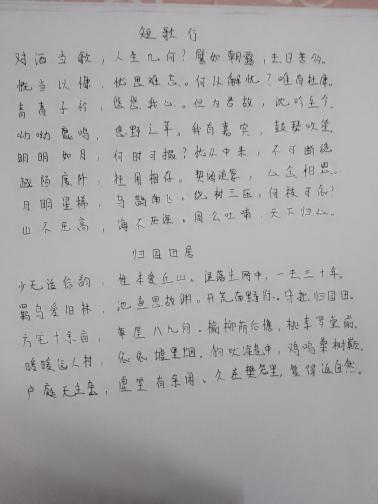 短歌行
对酒当歌，人生几何？譬如朝露，去日苦多。
慨当以慷，忧思难忘。何以解忧？唯有杜康。
青青子衿，悠悠我心。但为君故，沈吟至今。
呦呦鹿鸣，食野之苹。我有嘉宾，鼓瑟吹笙。
明明如月，何时可掇？忧从中来，不可断绝
越陌度阡，枉用相存。契阔谈䜩，心念旧恩。
月明星稀，乌鹊南飞。绕树三匝，何枝可依？
山不厌高，海不厌深。周公吐哺，天下归心。
归园田居
少无适俗韵，性本爱丘山。误落尘网中，一去三十年。
羁鸟爱旧林，池鱼思故渊。开荒南野际，守拙归园田。
方宅十余亩，草屋八九间。榆柳荫后檐，桃李罗堂前。
暧暧远人村，依依墟里烟。狗吠深巷中，鸡鸣桑树颠。
户庭无尘杂，虚室有余闲。久在樊笼里，复得返自然。